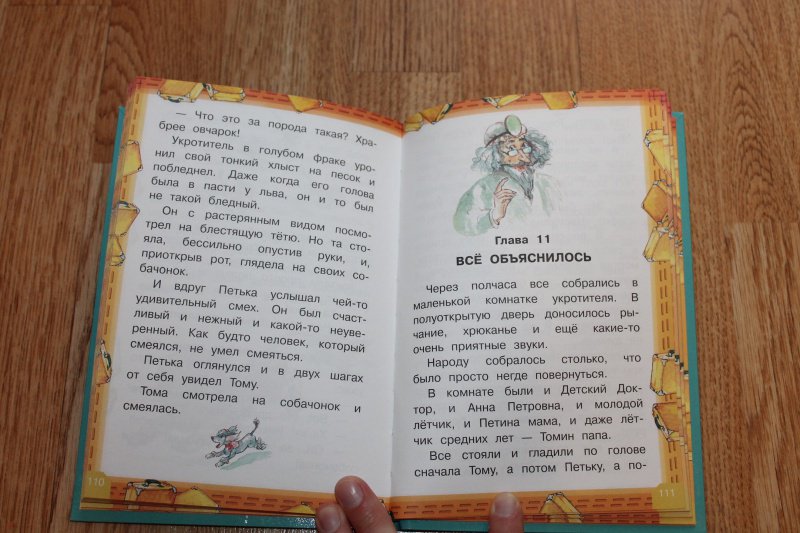 — Что это за порода такая? Хра-
брее овчарок!
Укротитель в голубом фраке уро-
нил свой тонкий хлыст на песок и
побледнел. Даже когда его голова
была в пасти у льва, он и то был
не такой бледный.
Он с растерянным видом посмо-
трел на блестящую тётю. Но та сто-
яла, бессильно опустив руки, и,
приоткрыв рот, глядела на своих со-
бачонок.
И вдруг Петька услышал чей-то
удивительный смех. Он был счаст-
ливый и нежный и какой-то неуве-
ренный. Как будто человек, который
смеялся, не умел смеяться.
Петька оглянулся и в двух шагах
от себя увидел Тому.
Тома смотрела на собачонок и
смеялась.
110
Глава 11
ВСЁ ОБЪЯСНИЛОСЬ
Через полчаса все собрались в
маленькой комнатке укротителя. В
полуоткрытую дверь доносилось ры-
чание, хрюканье и ещё какие-то
очень приятные звуки.
Народу собралось столько, что
было просто негде повернуться.
В комнате были и Детский Док-
тор, и Анна Петровна, и молодой
лётчик, и Петина мама, и даже лёт-
чик средних лет — Томин папа.
Все стояли и гладили по голове
сначала Тому, а потом Петьку, а по-
111